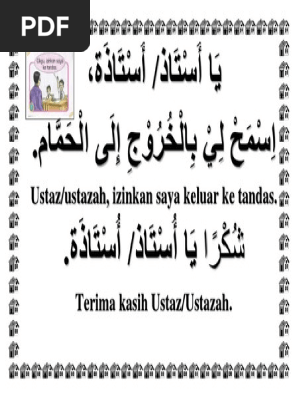 PDF
يَا أَسْتَاذ/ أَسْتَاذَة،
اِسْمَحْ لِيْ بِالْخُرُوْجِ إِلَى الْحَمَّام.
Ustaz/ustazah, izinkan saya keluar ke tandas.
شُكْرًا يَا أُسْتَاذ/ أُسْتَاذَة.
Terima kasih Ustaz/Ustazah.